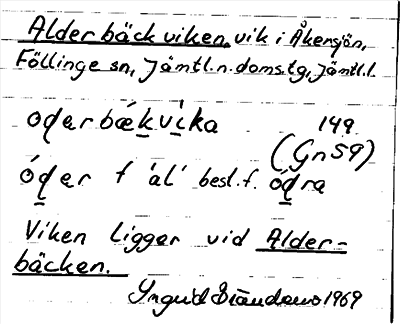 Alderbäckviken, vik i Åkersjön,
Föllinge sn, Jämtl.n.doms.tg, Jämtl.l.
oderbækvíka 149
(Gn59)
óder f 'al' best.f. ódra
Viken ligger vid Alder-
bäcken.
Yngvild 1969